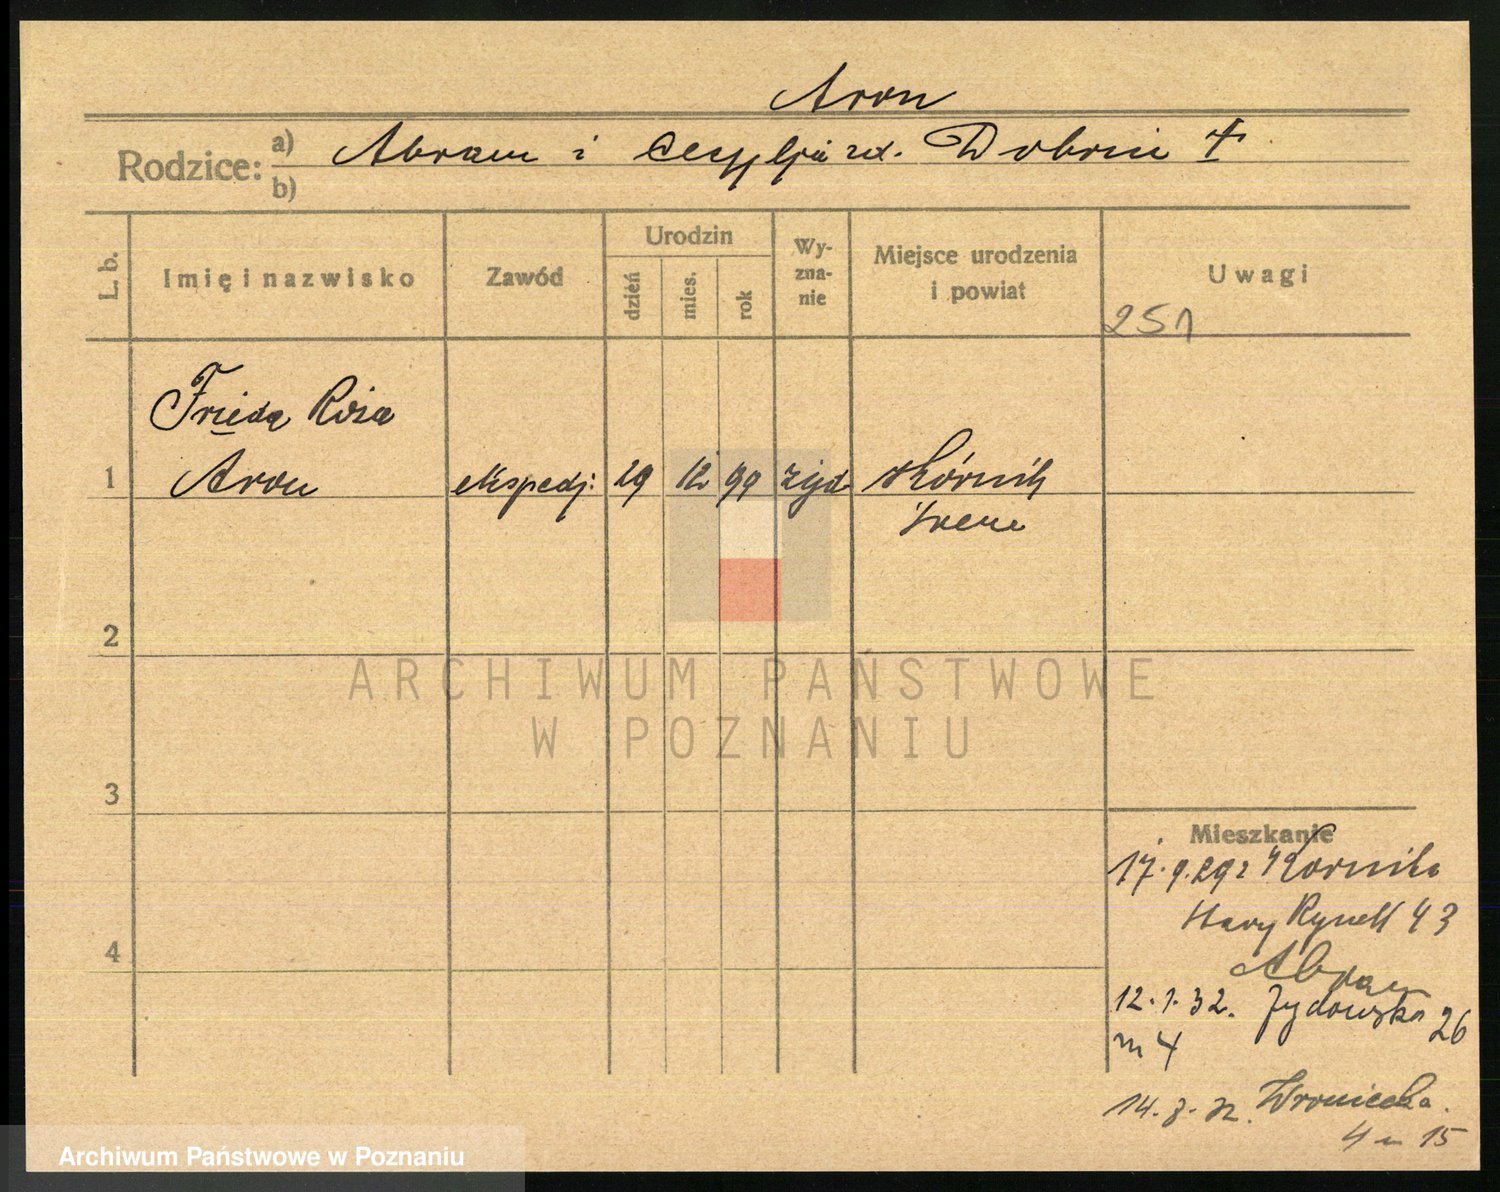 Aron
Rodzice: a) Abram i Cecylja zd. Dobrin
b)
L. b. Imię i nazwisko Zawód Urodzin dzień mies. rok Wy-zna-nie Miejsce urodzenia i powiat Uwagi
251
Frieda Róża
1 Aron ekspedj. 29 12 99 żyd Kórnik
Śrem
2
3
4
Mieszkanie
17.9.29 z Kórnika
Stary Rynek 43
Abram
12.1.32. Żydowska 26
m 4
14.3.32. Wroniecka
4 m 15
ARCHIWUM PAŃSTWOWE
W POZNANIU
Archiwum Państwowe w Poznaniu